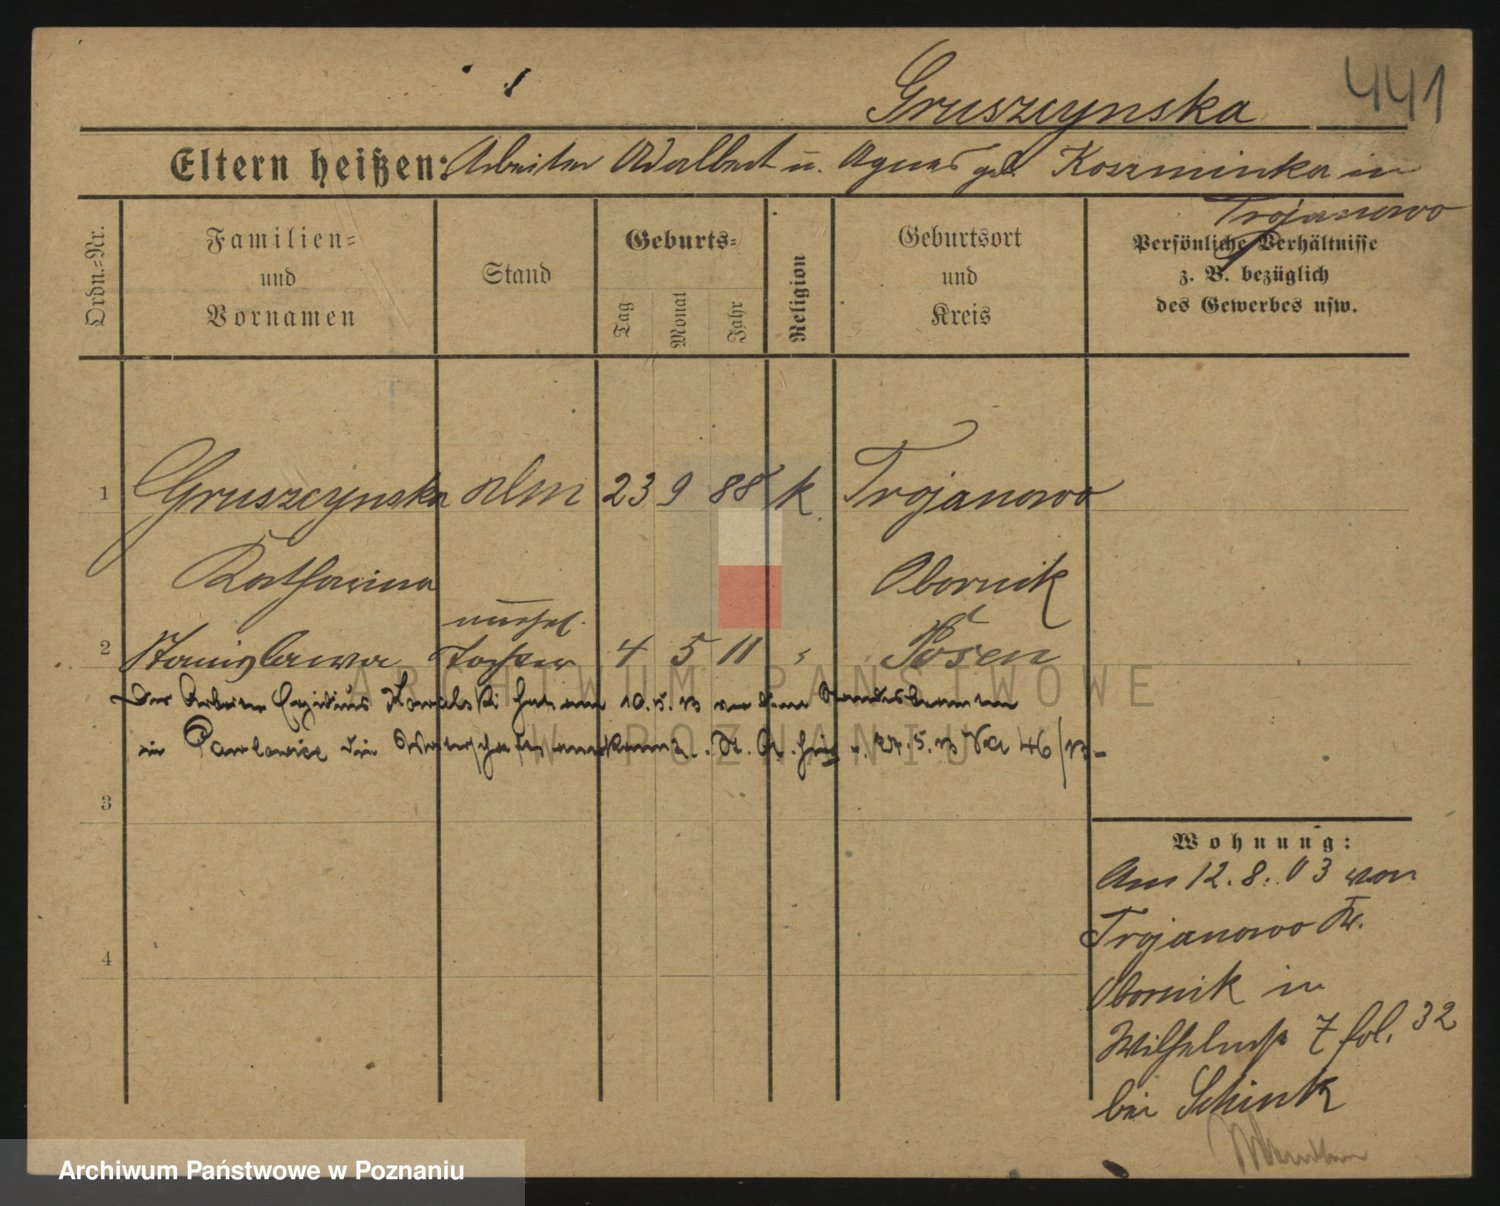 441
Gruszczynska
Eltern heißen: Arbeiter Adalbert u. Agnes geb. Koszminka in
Trojanowo
Ordn.=Nr.
Familien=
und
Vornamen
Stand
Geburts=
Tag
Monat
Jahr
Religion
Geburtsort
und
Kreis
Persönliche Verhältnisse
z. B. bezüglich
des Gewerbes usw.
1 Gruszczynska 23 9 88 k. Trojanowo
Katharina Obornik
unehel.
2 Stanislawa Tochter 4 5 11 " Posen
Der Arbeiter Egidius Kowalski hat am 10.5.13 vor dem Standesbeamten
in Pawlowice die Vaterschaft anerkannt. 5.13 46/13-
3
4
Wohnung:
Am 12.8.03 von
Trojanowo Kr.
Obornik in
Wilhelmstr 7 fol. 32
bei Schink
ARCHIWUM PAŃSTWOWE
W POZNANIU
Archiwum Państwowe w Poznaniu